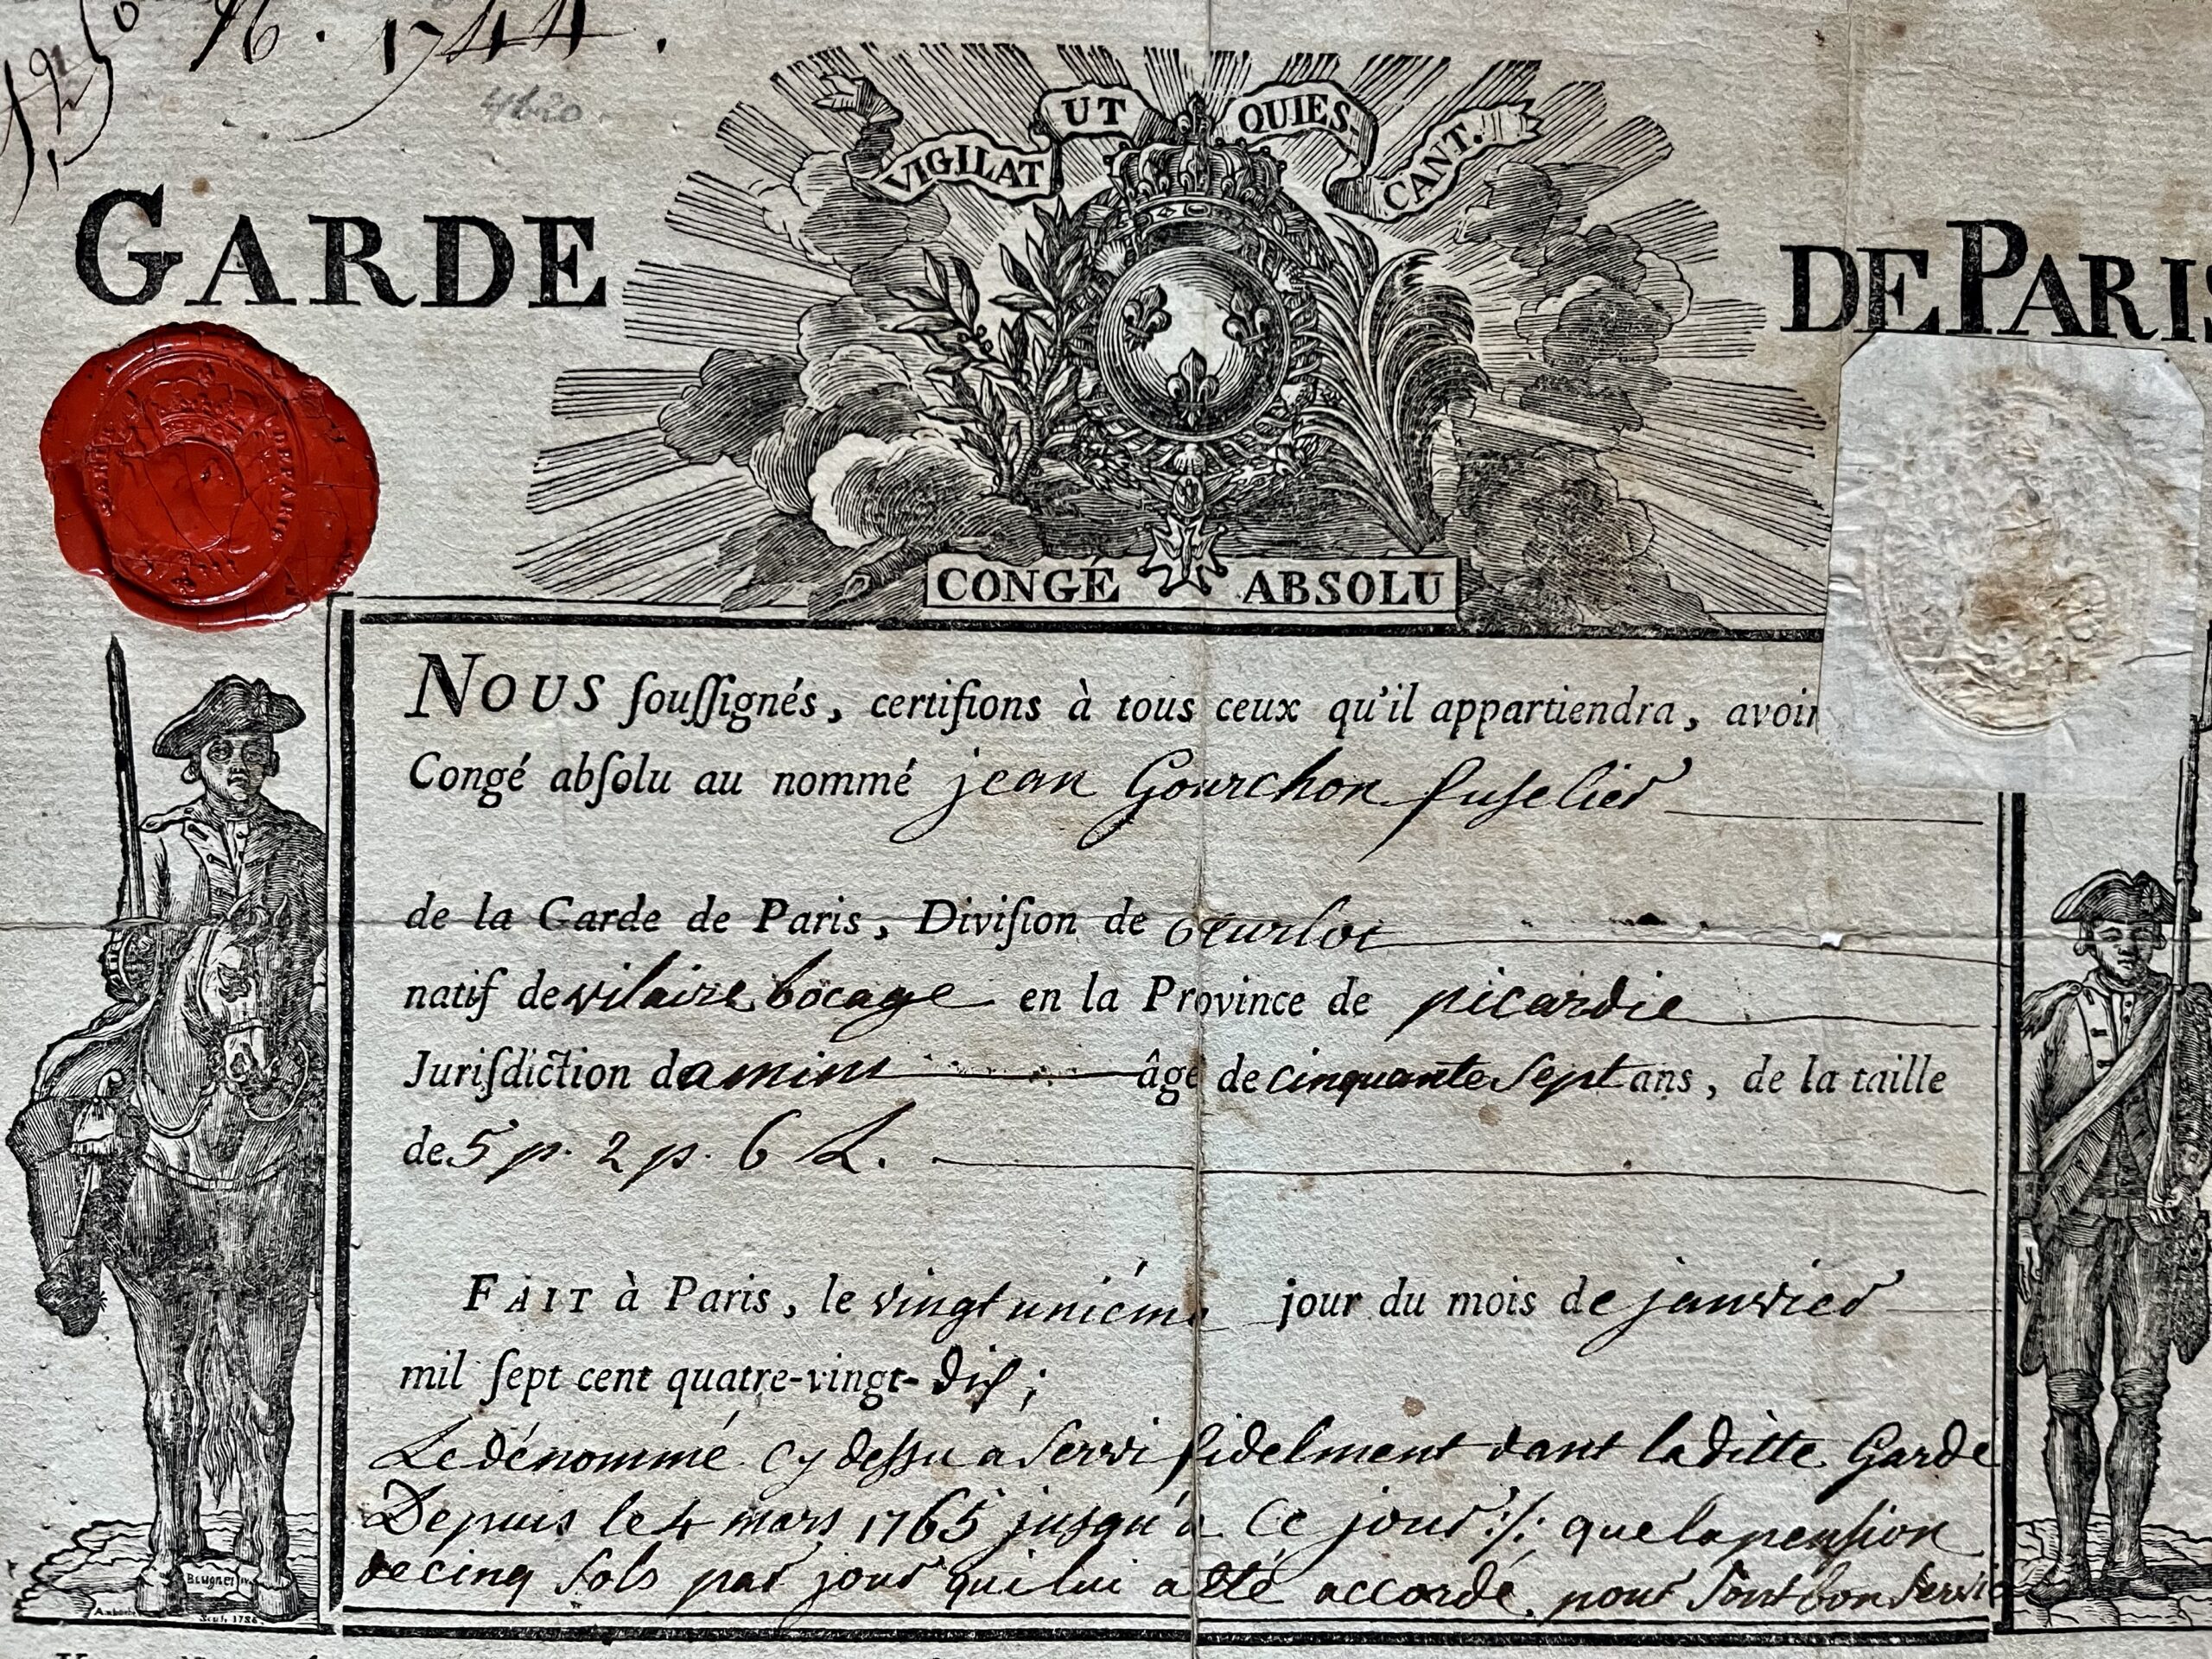 N. 1744.
4620.
VIGILAT UT QUIES-CANT.
GARDE DE PARIS
CONGÉ ABSOLU
NOUS ſouſſignés, certifions à tous ceux qu'il appartiendra, avoir
Congé abſolu au nommé jean Gourchon fuselier
de la Garde de Paris, Diviſion de
natif de vilaire bocage en la Province de picardie
Juriſdiction damins âgé de cinquante sept ans, de la taille
de 5 p. 2 p. 6 L.
FAIT à Paris, le vingt unieme jour du mois de janvier
mil ſept cent quatre-vingt-dix;
Le dénommé cy dessu a servi fidelment dant laditte Garde
Depuis le 4 mars 1765 jusqu'a Ce jour ·/· que la pension
de cinq sols par jour qui lui a été accordé, pour sont bon service
Beugnet
Scul. 1786.